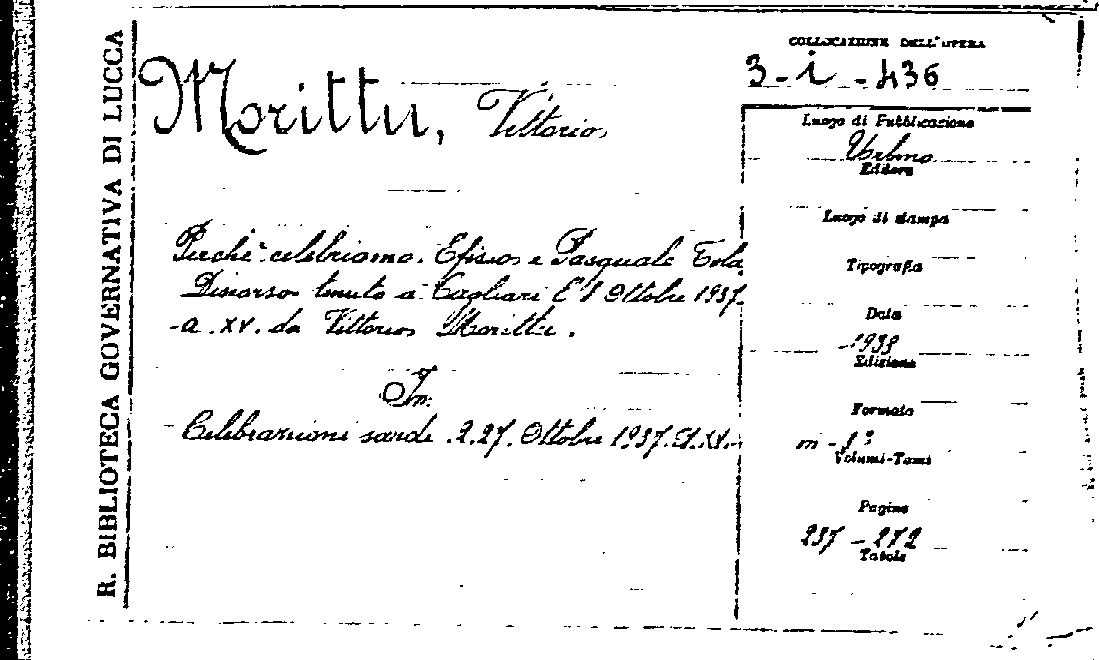 R. BIBLIOTECA GOVERNATIVA DI LUCCA
Morittu, Vittorio
Perchè celebriamo Efisio e Pasquale Tola
Discorso tenuto a Cagliari l'8 Ottobre 1937
a. XV. da Vittorio Morittu.
In:
Celebrazioni sarde. 2.27. Ottobre 1937. A.XV.
COLLOCAZIONE DELL'OPERA
3-i-436
Luogo di Pubblicazione
Urbino
Editore
Luogo di stampa
Tipografia
Data
1938
Edizione
Formato
in-8°
Volumi-Tomi
Pagine
237-272
Tavole